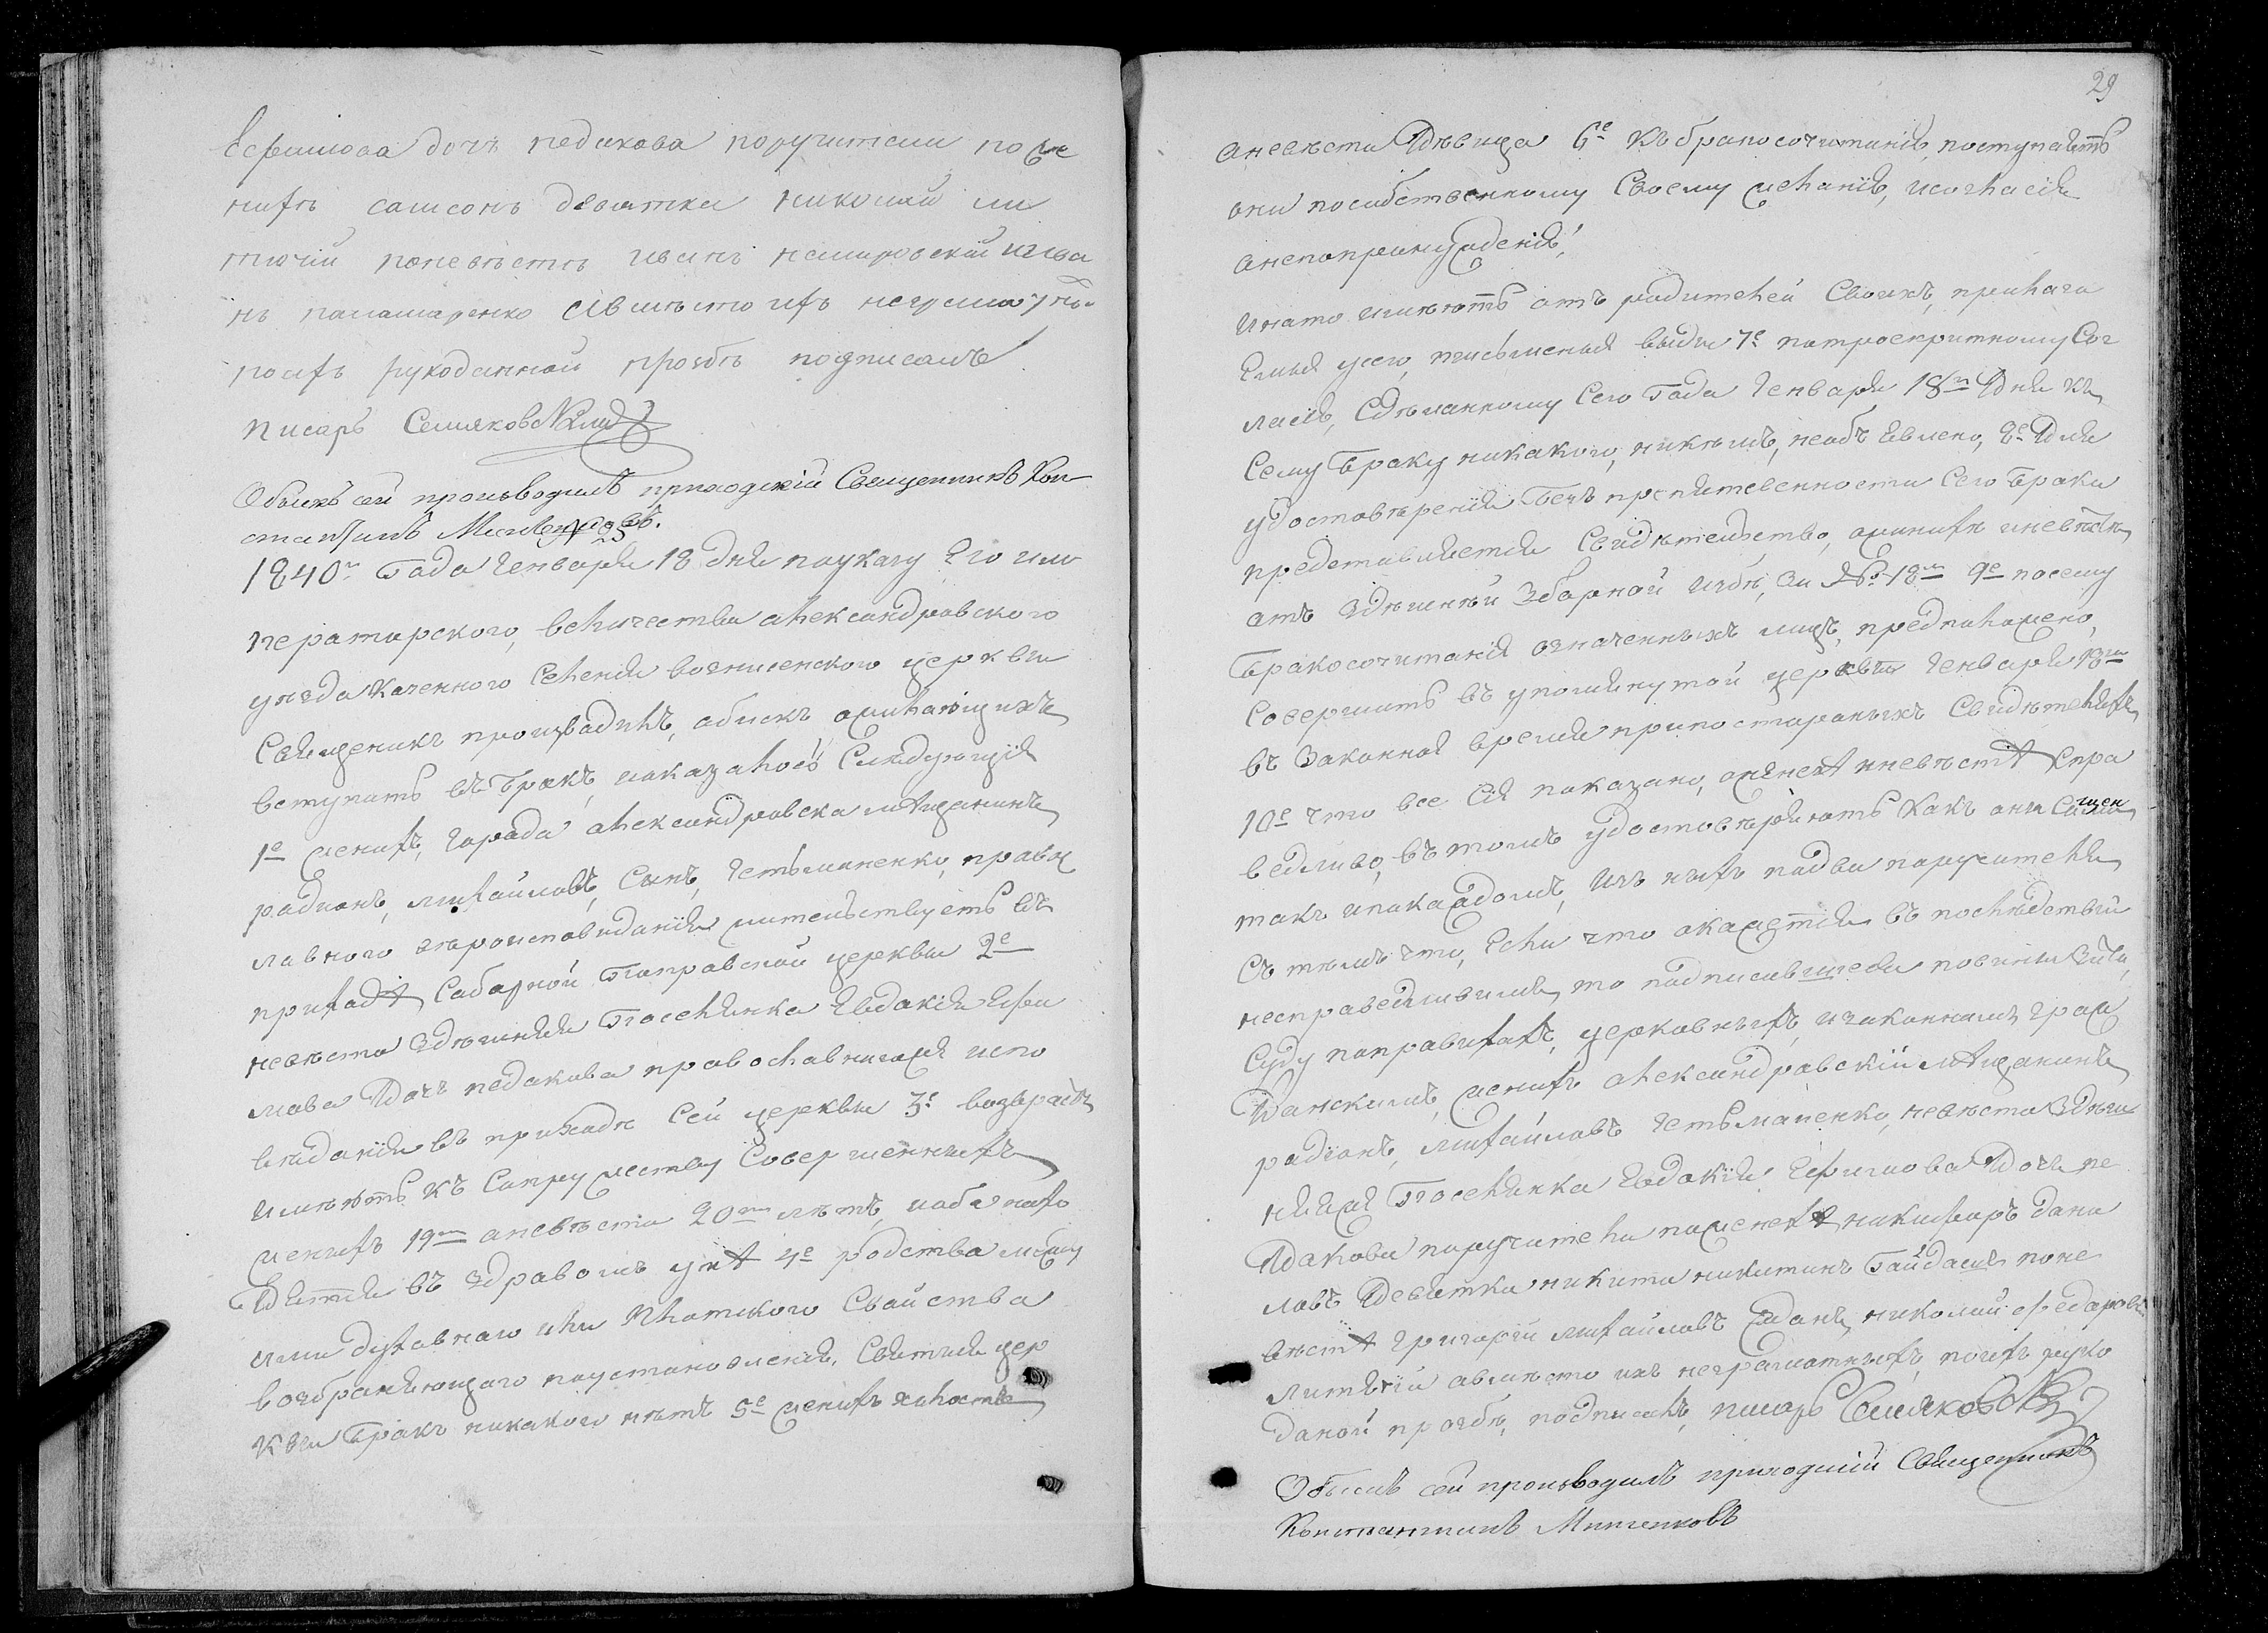 Ефимова дочъ педакова поручители по же
нихѣ самсонъ девятка николай ли
тючій поневѣстѣ иванъ немировскій ива
нъ панамаренко авмѣсто ихъ неграмотны
поихъ рукоданной прозбѣ подписалъ
писарь Семяковскій
Обыскъ сей производилъ приходскій Священникъ Кон
стантинъ
1840го Года Генваря 18 дня поуказу Его им
ператорского, величества александровского
уѣзда казенного селения вознисенского церкви
Свищеникъ производилъ, обыскъ, ожилающихъ
вступить въ Бракъ, иоказалось Слидующія
1е женихъ, Города александровска мѣщанинъ
радионъ, михайловъ, Сынъ, Гетьманенко, право
лавного вѣроисповиданія жительствуетъ въ
приходѣ, Сабарной Покровской церквы 2е
невѣста здѣшняя Поселянка Евдакія Ефи
мова Дочъ педакова православнагожъ испо
виданія въ приходѣ Сей церквы 3е возврасть
имѣютъ къ Супружеству Совершенный
женихъ 19ть аневѣста 20ть лѣтъ, иоба нахо
дятся въ здравомъ умѣ 4е родства между
ими духовнаго или плотского Свойства
возбраняющаго поустановленію, Святыя цер
квы Бракъ никакого нѣтъ 5е женихъ холость
29
аневѣста Дѣвица 6е къ бракосочитанію, поступаютъ
они пособственному Своему желанію, исогласія
анепопринуждению,
инато имѣютъ отъ родителей Своихъ, прилага
емыя усего, письменыя выды 7е потроекратному Сог
ласію, Сдѣланному Сего Года Генваря 18го Дня къ
Сему Браку никакого, никѣмъ, необъявлено, 8е Для
удостовѣрения Безъ препятсвенности Сего Брака
представляется Свидѣтельство, оженихѣ иневѣстѣ
отъ здѣшней зборной избы, за № 18м 9е посему
Бракосочитанія означенныхъ лицъ, предположено,
Совершить въ упомянутой церквы Генваря
въ Законной время припостороныхъ Свидѣтеляхъ
10е что все Сія показано, оженехѣ иневѣстѣ Спра
ведливо, въ томъ удостовѣряютъ какъ они Сами
такъ ипокаждомъ, изъ ныхъ подва поручителя
съ темъ что, если что окажется въ послѣдствіи
несправедливимъ, то подписавшиеся повинны
Суду поправиламъ, церковнымъ, изаконнымъ граж
данскимъ, женихъ александровскій мѣщанинъ
радіонъ, михайловъ Гетьманенко, невѣста здѣш
няяжъ Поселянка Евдокія Ефимова Дочъ пе
дакова поручители поженехѣ никифоръ дани
ловъ Девятка никита никитинъ Гайдамъ поне
вѣстѣ Григорій михайловъ Жданъ, николай федоровъ
литючій авмѣсто ихъ неграмотныхъ, поихъ руко
даной прозбѣ, подписалъ, писарь Семяковскій
Обыскъ сей производилъ приходскій Священникъ
Константинъ